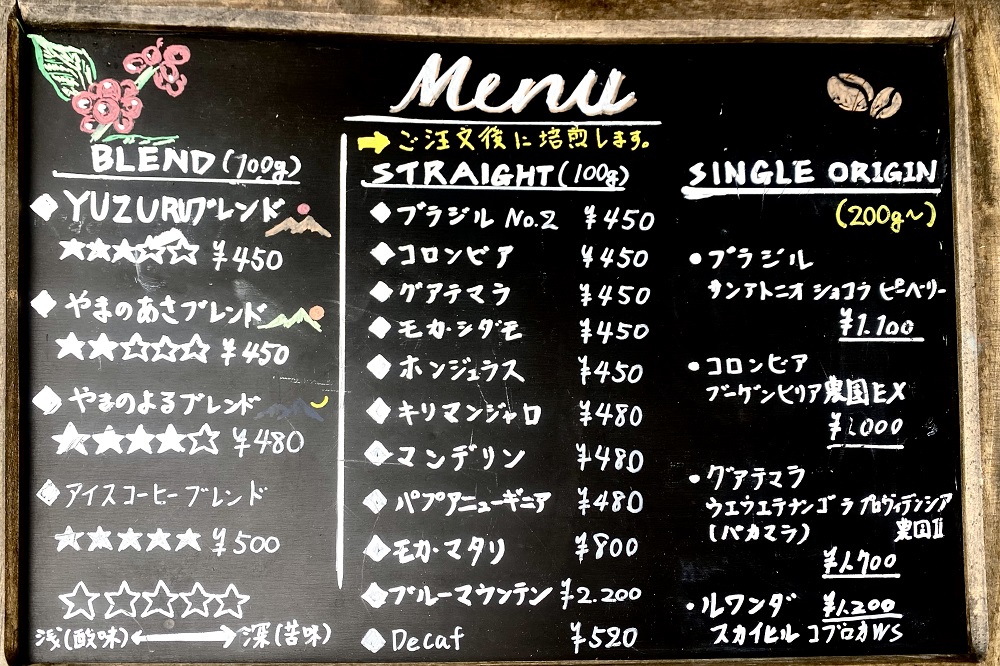 Menu
ご注文後に焙煎します。
BLEND (100g)
YUZURUブレンド
★★★☆☆ ¥450
やまのあさブレンド
★★☆☆☆ ¥450
やまのよるブレンド
★★★★☆ ¥480
アイスコーヒーブレンド
★★★★★ ¥500
☆☆☆☆☆
浅(酸味) ⟷ 深(苦味)
STRAIGHT (100g)
ブラジル No.2 ¥450
コロンビア ¥450
グアテマラ ¥450
モカ・シダモ ¥450
ホンジュラス ¥450
キリマンジャロ ¥480
マンデリン ¥480
パプアニューギニア ¥480
モカ・マタリ ¥800
ブルーマウンテン ¥2.200
Decaf ¥520
SINGLE ORIGIN
(200g～)
・ブラジル
サンアトニオ ショコラ ピーベリー
¥1.100
・コロンビア
ブーゲンビリア農園EX
¥1.000
・グアテマラ
ウエウエテナンゴ ラ プロヴィデンシア
(パカマラ) 農園Ⅱ
¥1.700
・ルワンダ ¥1.200
スカイヒル コプロカWS